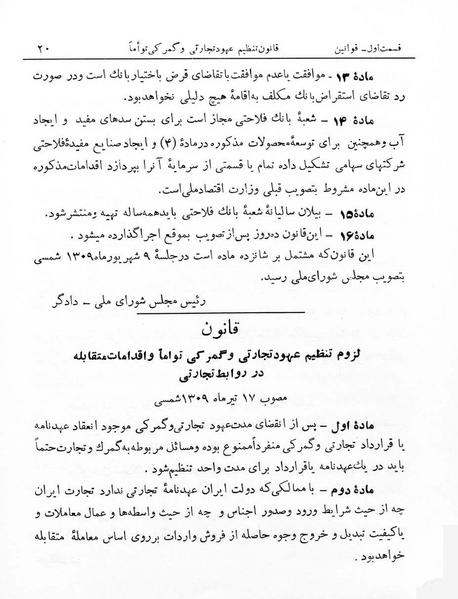 قسمت اول - قوانین قانون تنظیم عهود تجارتی و گمرکی توأماً ۲۰
مادهٔ ۱۳ - موافقت یا عدم موافقت با تقاضای قرض باختیار بانك است ودر صورت
رد تقاضای استقراض بانك مكلف به اقامهٔ هیچ دلیلی نخواهد بود.
مادهٔ ۱۴ - شعبهٔ بانك فلاحتی مجاز است برای بستن سدهای مفید و ایجاد
آب وهمچنین برای توسعهٔ محصولات مذكوره درمادهٔ (۴) و ایجاد صنایع مفیدهٔ فلاحتی
شرکتهای سهامی تشکیل داده تمام یا قسمتی از سرمایهٔ آنرا بپردازد اقدامات مذکوره
در این ماده مشروط بتصویب قبلی وزارت اقتصاد ملی است.
مادهٔ ۱۵ - بیلان سالیانهٔ شعبهٔ بانك فلاحتی باید همه ساله تهیه ومنتشر شود.
مادهٔ ۱۶ - این قانون ده روز پس از تصویب بموقع اجرا گذارده میشود .
این قانون که مشتمل بر شانزده ماده است درجلسهٔ ۹ شهریور ماه ۱۳۰۹ شمسی
بتصویب مجلس شورای ملی رسید.
رئیس مجلس شورای ملی - دادگر
قانون
لزوم تنظیم عهود تجارتی وگمرکی تواماً واقدامات متقابله
در روابط تجارتی
مصوب ۱۷ تیرماه ۱۳۰۹شمسی
مادهٔ اول - پس از انقضای مدت عهود تجارتی وگمرکی موجود انعقاد عهدنامه
یا قرارداد تجارتی وگمرکی منفرداً ممنوع بوده ومسائل مربوطه به گمرك وتجارت حتماً
باید در یك عهدنامه یاقرارداد برای مدت واحد تنظیم شود .
مادهٔ دوم - با ممالکی که دولت ایران عهدنامهٔ تجارتی ندارد تجارت ایران
چه از حیث شرایط ورود وصدور اجناس و چه از حیث واسطه‌ها و عمال معاملات و
یاکیفیت تبدیل و خروج وجوه حاصله از فروش واردات بر روی اساس معاملهٔ متقابله
خواهد بود .